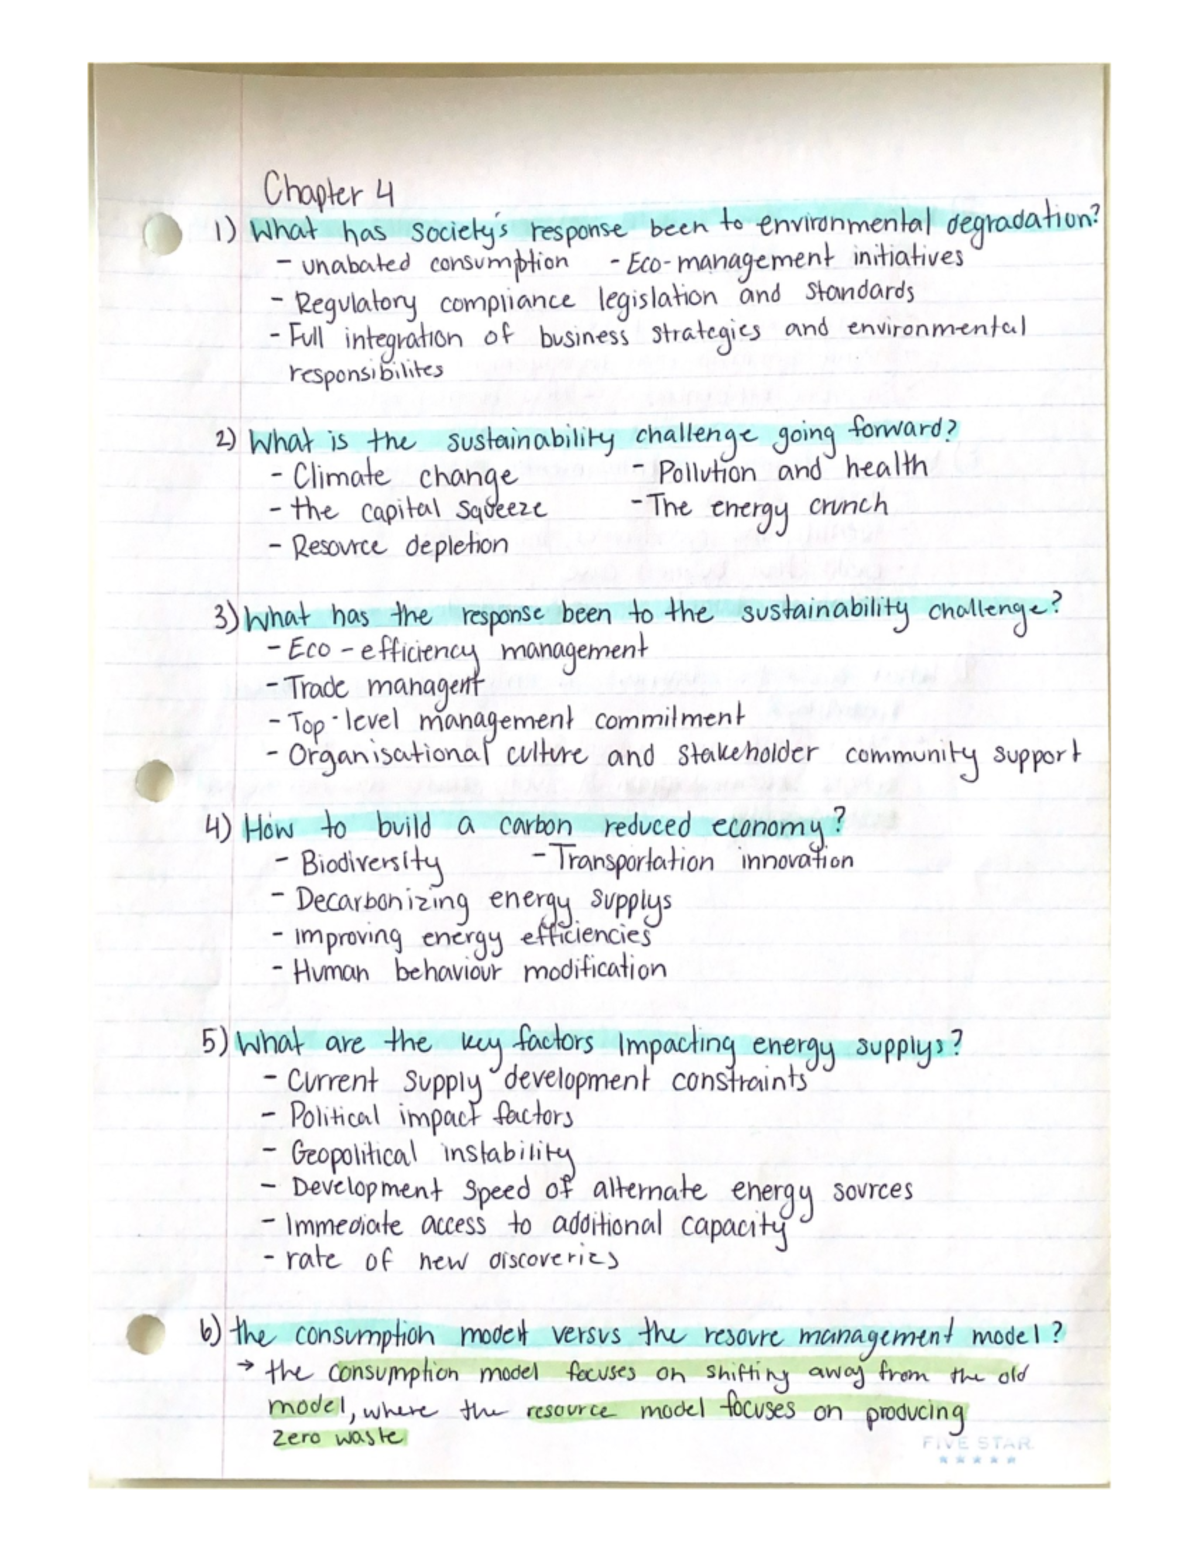 Chapter 4
1) What has Society's response been to environmental degradation?
- unabated consumption - Eco-management initiatives
- Regulatory compliance legislation and standards
- Full integration of business strategies and environmental
responsibilites
2) What is the sustainability challenge going forward?
- Climate change - Pollution and health
- the capital squeeze - The energy crunch
- Resource depletion
3) What has the response been to the sustainability challenge?
- Eco-efficiency management
- Trade managent
- Top-level management commitment
- Organisational culture and stakeholder community support
4) How to build a carbon reduced economy?
- Biodiversity - Transportation innovation
- Decarbonizing energy supplys
- improving energy efficiencies
- Human behaviour modification
5) What are the key factors Impacting energy supplys?
- Current supply development constraints
- Political impact factors
- Geopolitical instability
- Development speed of alternate energy sources
- Immediate access to additional capacity
- rate of new discoveries
6) the consumption model versus the resoure management model?
→ the consumption model focuses on shifting away from the old
model, where the resource model focuses on producing
zero waste
FIVE STAR
★★★★★